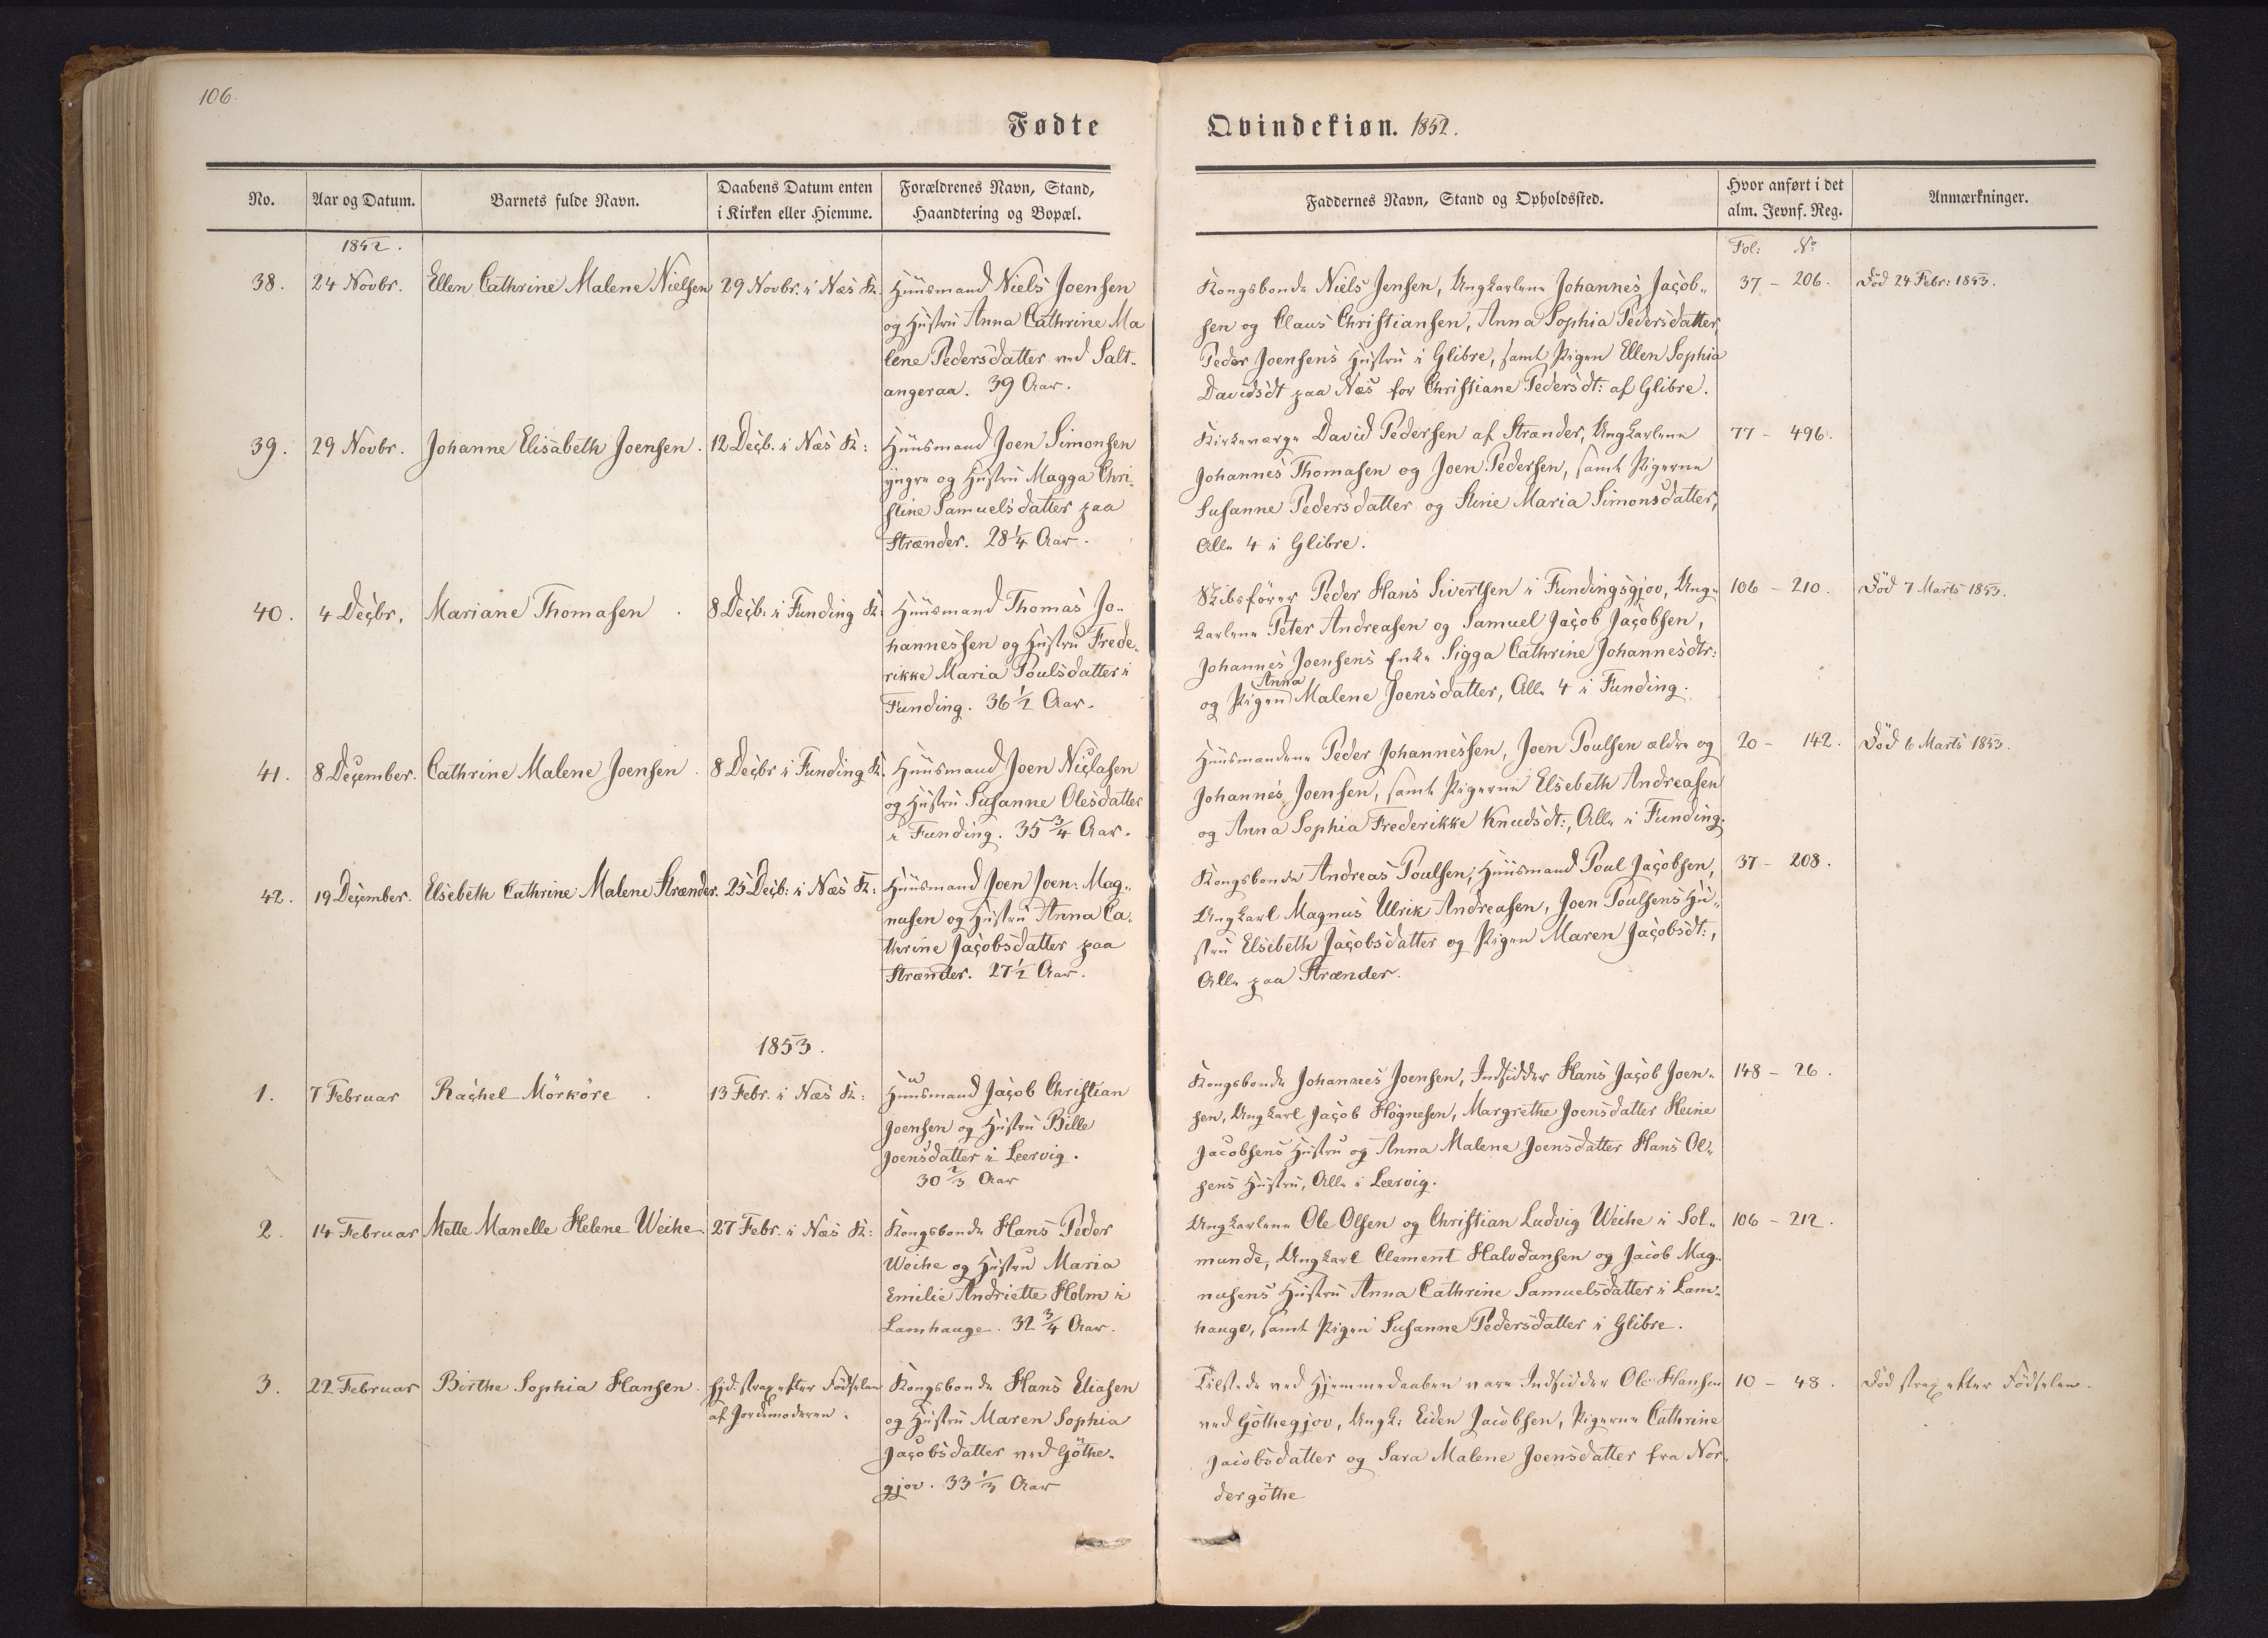 106.
Fødte
Qvindekiøn. 1852.
No.
Aar og Datum.
Barnets fulde Navn.
Daabens Datum enten
i Kirken eller Hiemme.
Forældrenes Navn, Stand,
Haandtering og Bopæl.
Faddernes Navn, Stand og Opholdssted.
Hvor anført i det
alm. Jevnf. Reg.
Anmærkninger.
1852.
Fol: No
38.
24 Novbr.
Ellen Cathrine Malene Nielsen
29 Novbr. i Næs K.
Huusmand Niels Joensen
og Hustru Anna Cathrine Ma
lene Pedersdatter ved Salt-
angeraa. 39 Aar.
Kongsbonde Niels Jensen, Ungkarlene Johannes Jacob-
sen og Claus Christiansen, Anna Sophia Pedersdatter
Peder Joensens Hustru i Glibre, samt Pigen Ellen Sophia
Davidsdt paa Næs for Christiane Pedersdt: af Glibre.
37 - 206.
Död 24 Febr: 1853.
39.
29 Novbr.
Johanne Elisabeth Joensen.
12 Decb. i Næs K:
Huusmand Joen Simonsen
yngre og Hustru Magga Chri-
stine Samuelsdatter paa
Strænder. 28 1/4 Aar.
Kirkeværge David Pedersen af Strænder, Ungkarlene
Johannes Thomasen og Joen Pedersen, samt Pigerne
Susanne Pedersdatter og Stine Maria Simonsdatter,
Alle 4 i Glibre.
77 - 496.
40.
4 Decbr.
Mariane Thomasen.
8 Decb: i Funding K:
Huusmand Thomas Jo-
hannessen og Hustru Frede-
rikke Maria Poulsdatter i
Funding. 36 1/2 Aar.
Skibsförer Peder Hans Sivertsen i Fundingsgjov, Ung-
karlene Peter Andreasen og Samuel Jacob Jacobsen,
Johannes Joensens Enke Sigga Cathrine Johannesdtr:
og Pigen Anna Malene Joensdatter, Alle 4 i Funding.
106 - 210.
Död 7 Marts 1853.
41.
8 December.
Cathrine Malene Joensen.
8 Decbr i Funding K.
Huusmand Joen Niclasen
og Hustru Susanne Olesdatter
i Funding. 35 3/4 Aar.
Huusmændene Peder Johannessen, Joen Poulsen ældre og
Johannes Joensen, samt Pigerne Elsebeth Andreasen
og Anna Sophia Frederikke Knudsdt:, Alle i Funding.
20 - 142.
Död 6 Marts 1853.
42.
19 December.
Elsebeth Cathrine Malene Strænder.
25 Decb: i Næs K:
Huusmand Joen Joen: Mag-
nusen og Hustru Anna Ca-
thrine Jacobsdatter paa
Strænder. 27 1/2 Aar.
Kongsbonde Andreas Poulsen, Huusmand Poul Jacobsen,
Ungkarl Magnus Ulrik Andreasen, Joen Poulsens Hu-
stru Elsebeth Jacobsdatter og Pigen Maren Jacobsdt:,
Alle paa Strænder.
37 - 208.
1853.
1.
7 Februar
Rachel Mörköre.
13 Febr. i Næs K:
Huusmand Jacob Christian
Joensen og Hustru Bille
Joensdatter i Leervig.
30 2/3 Aar
Kongsbonde Johannes Joensen, Indsidder Hans Jacob Joen-
sen, Ungkarl Jacob Högnesen, Margrethe Joensdatter Heine
Jacobsens Hustru og Anna Malene Joensdatter Hans Ol-
sens Hustru, Alle i Leervig.
148 - 26.
2.
14 Februar
Mette Manelle Helene Weihe.
27 Febr. i Næs K:
Kongsbonde Hans Peder
Weihe og Hustru Maria
Emilie Andriette Holm i
Lamhauge. 32 3/4 Aar.
Ungkarlene Ole Olsen og Christian Ludvig Weihe i Sol-
munde, Ungkarl Clement Halvdansen og Jacob Mag-
nusens Hustru Anna Cathrine Samuelsdatter i Lam-
hauge, samt Pigen Susanne Pedersdatter i Glibre.
106 - 212.
3.
22 Februar
Birthe Sophia Hansen.
hjd. strax efter Födselen
af Jordemoderen.
Kongsbonde Hans Eliasen
og Hustru Maren Sophia
Jacobsdatter ved Göthe-
gjov. 33 1/3 Aar
Tilstede ved Hjemmedaaben vare Indsidder Ole Hansen
ved Göthegjov, Ungk: Eiden Jacobsen, Pigerne Cathrine
Jacobsdatter og Sara Malene Joensdatter fra Nor-
dergöthe
10 - 48.
Död strax efter Födselen.